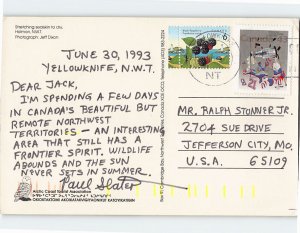 Stretching sealskin to dry,
Holman, NWT.
Photograph: Jeff Dixon
JUNE 30, 1993
YELLOWKNIFE, N.W.T.
DEAR JACK,
I'M SPENDING A FEW DAYS
IN CANADA'S BEAUTIFUL BUT
REMOTE NORTHWEST
TERRITORIES - AN INTERESTING
AREA THAT STILL HAS A
FRONTIER SPIRIT. WILDLIFE
ABOUNDS AND THE SUN
NEVER SETS IN SUMMER.
Paul Slater
Arctic Coast Tourist Association
NT
MR. RALPH STONNER JR.
2704 SUE DRIVE
JEFFERSON CITY, MO.
U.S.A. 65109